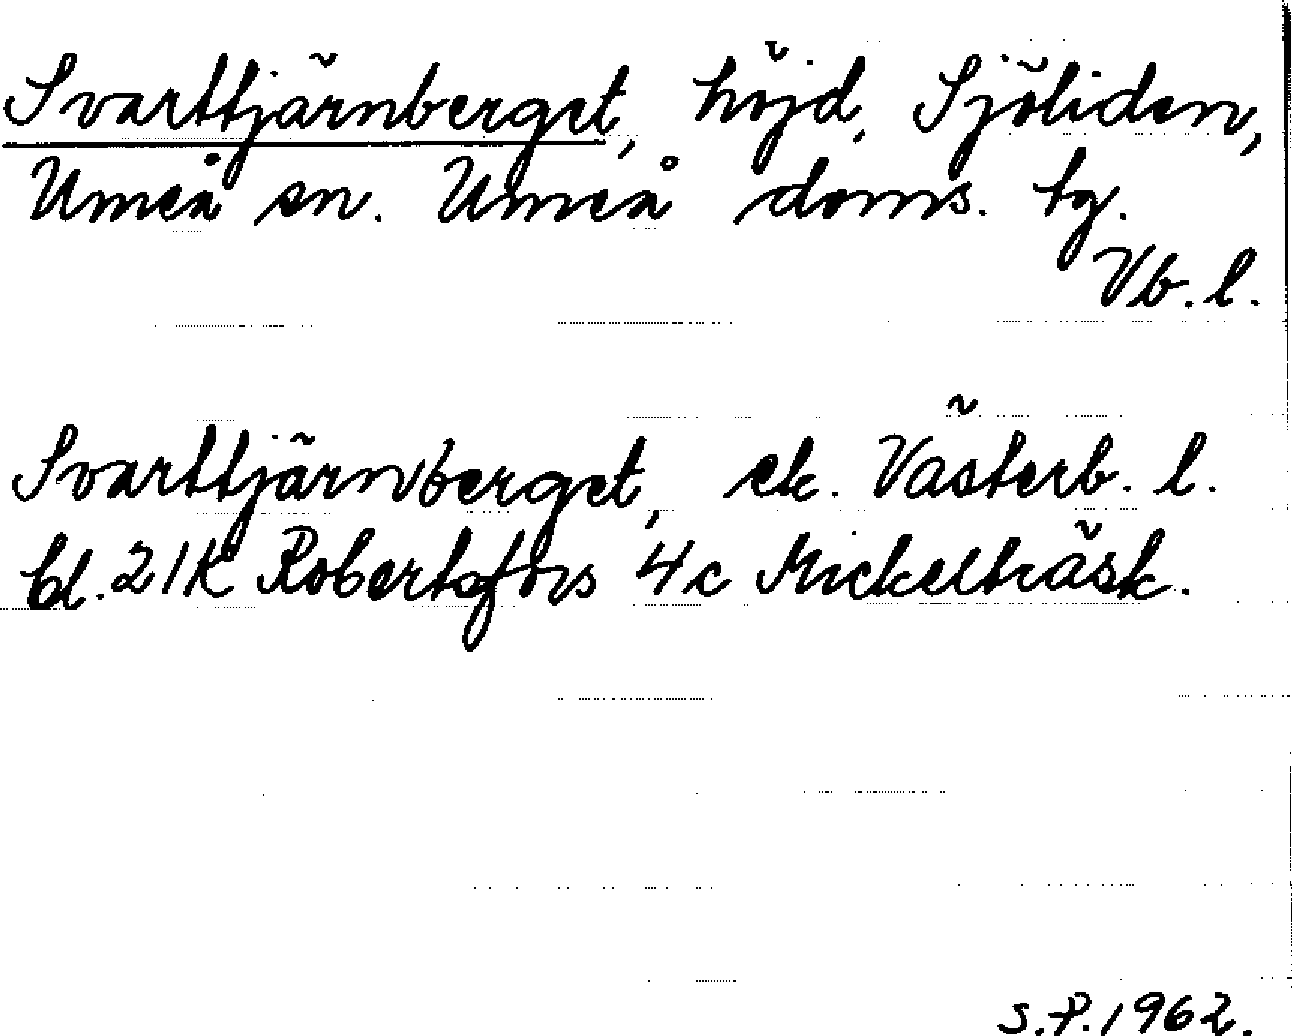 Svarttjärnberget, höjd, Sjöliden,
Umeå sn. Umeå doms. tg.
Vb. l.
Svarttjärnberget, ek. Västerb. l.
bl. 21K Robertsfors 4c Mickelträsk.
S.P. 1962.